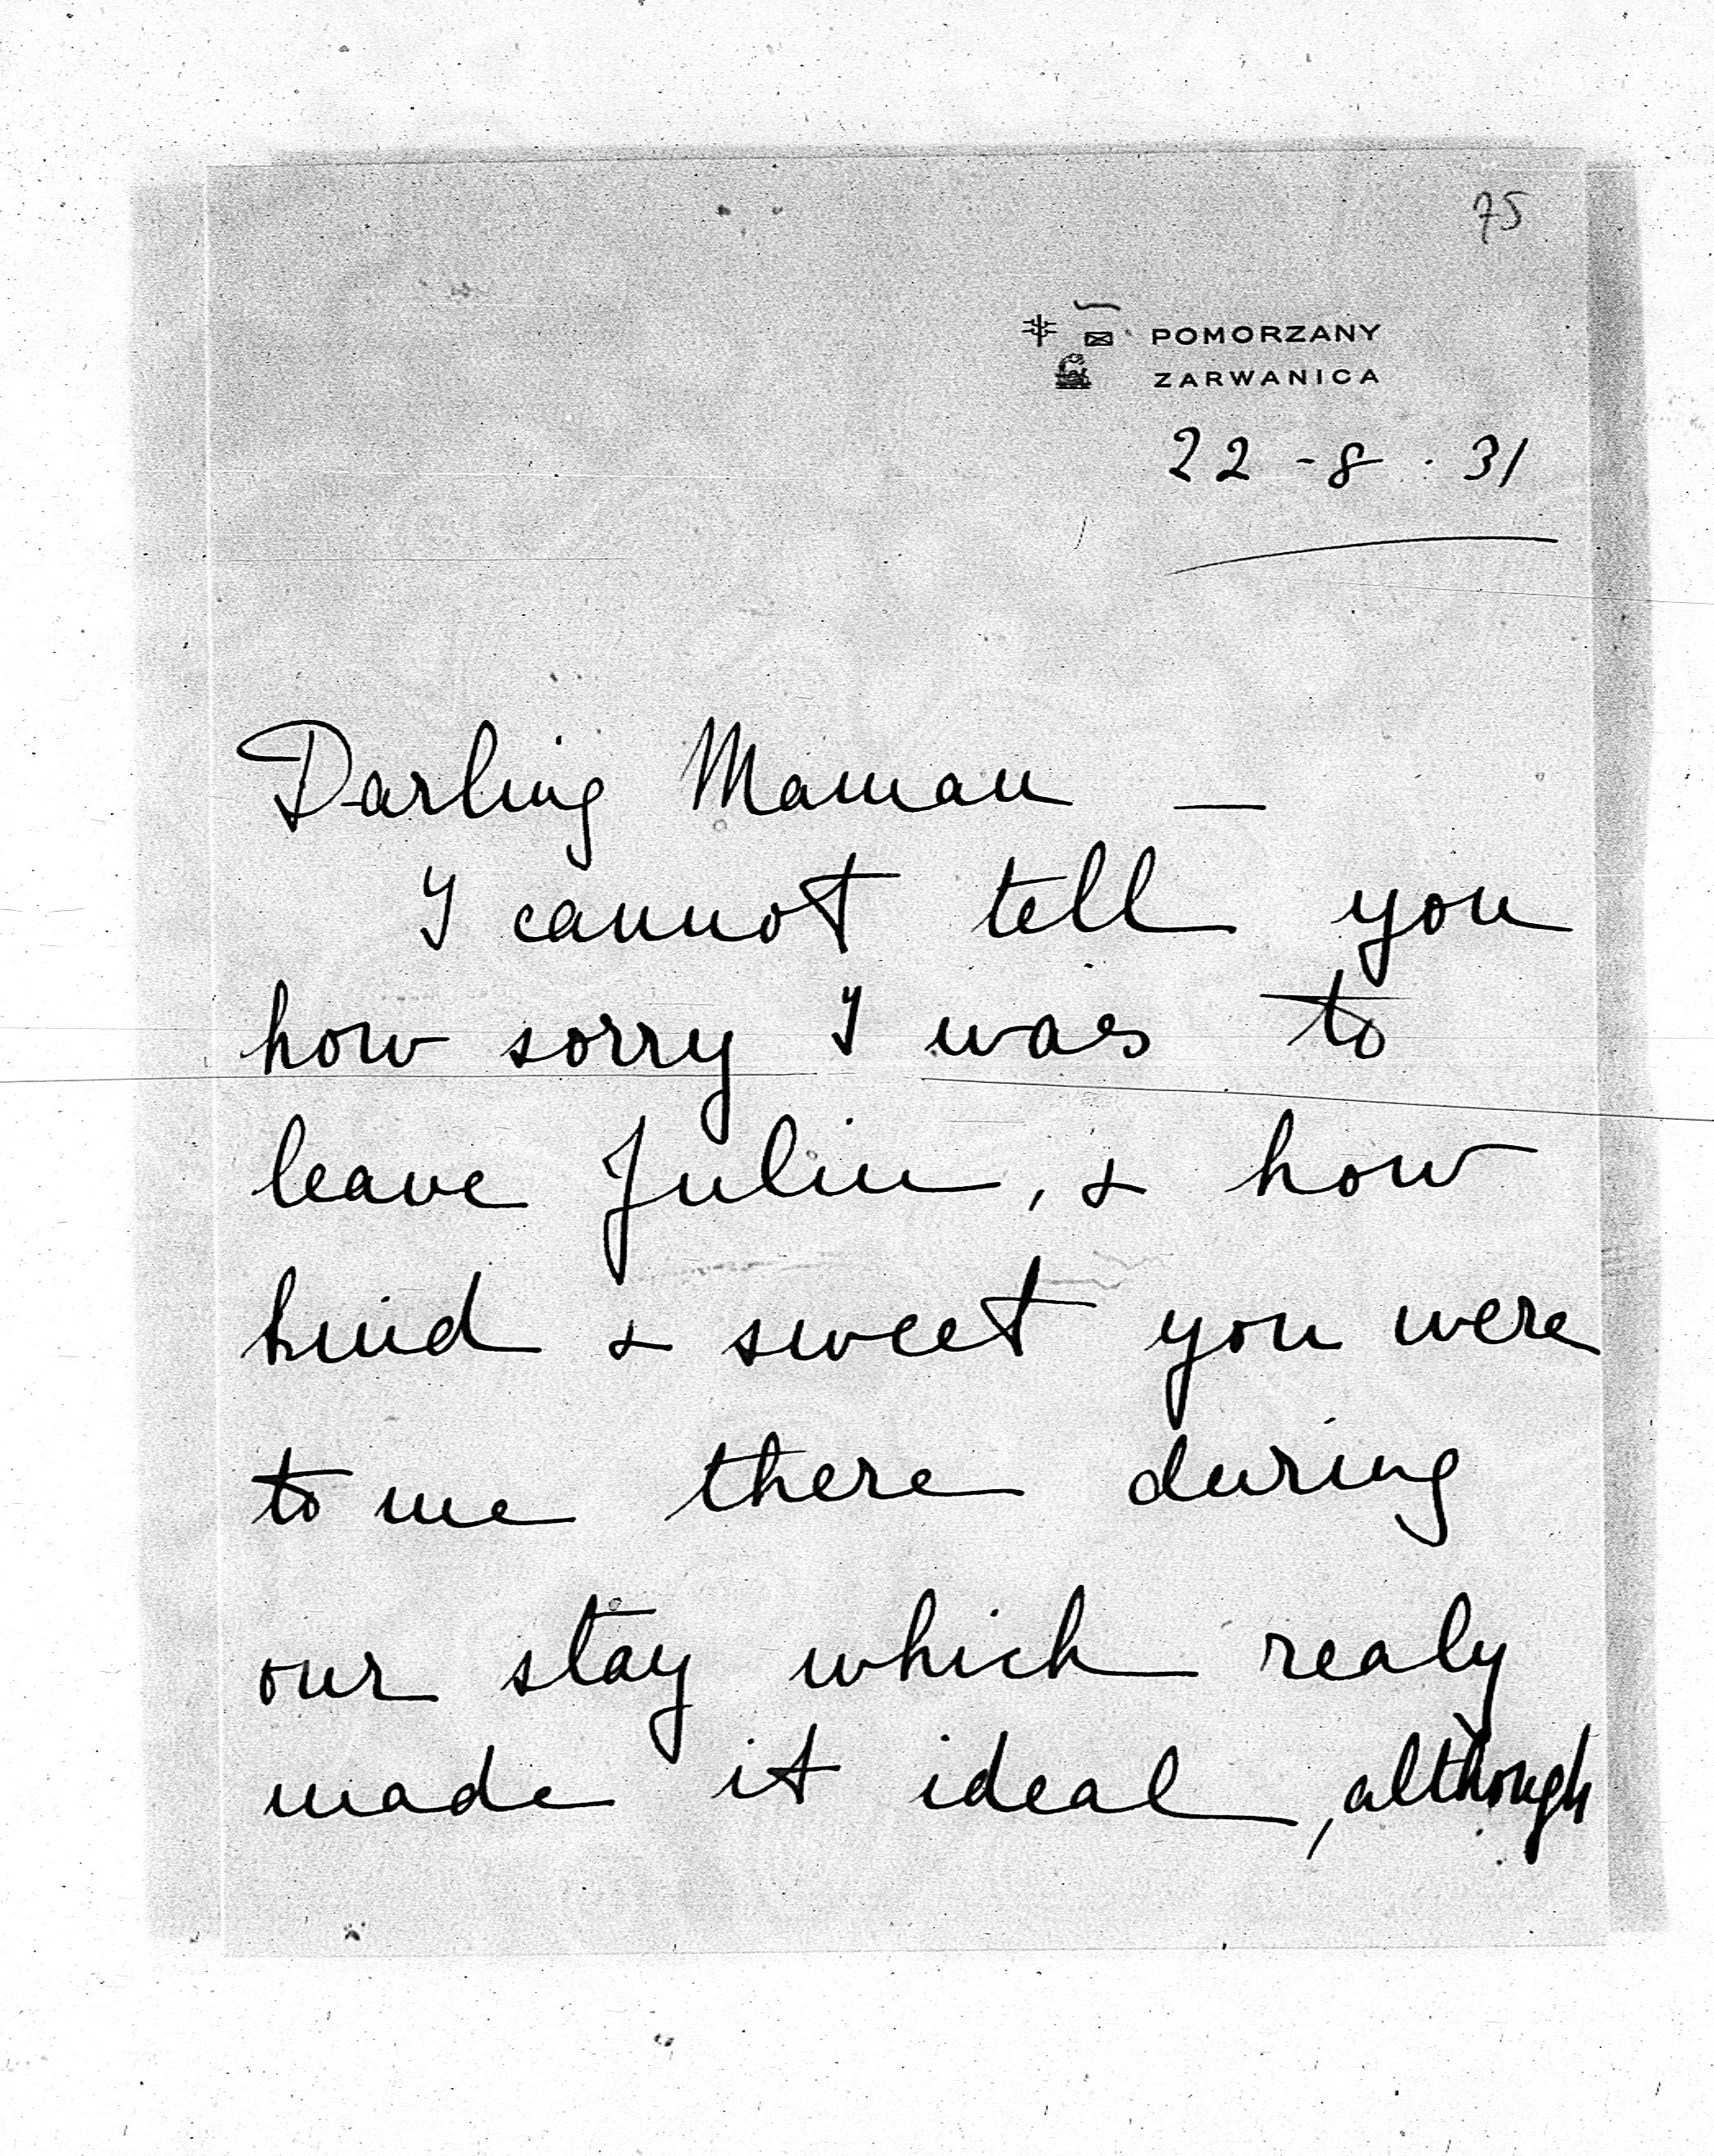 75
POMORZANY
ZARWANICA
22 - 8 . 31
Darling Maman —
I cannot tell you
how sorry I was to
leave Julin, & how
kind & sweet you were
to me there during
our stay which realy
made it ideal, although